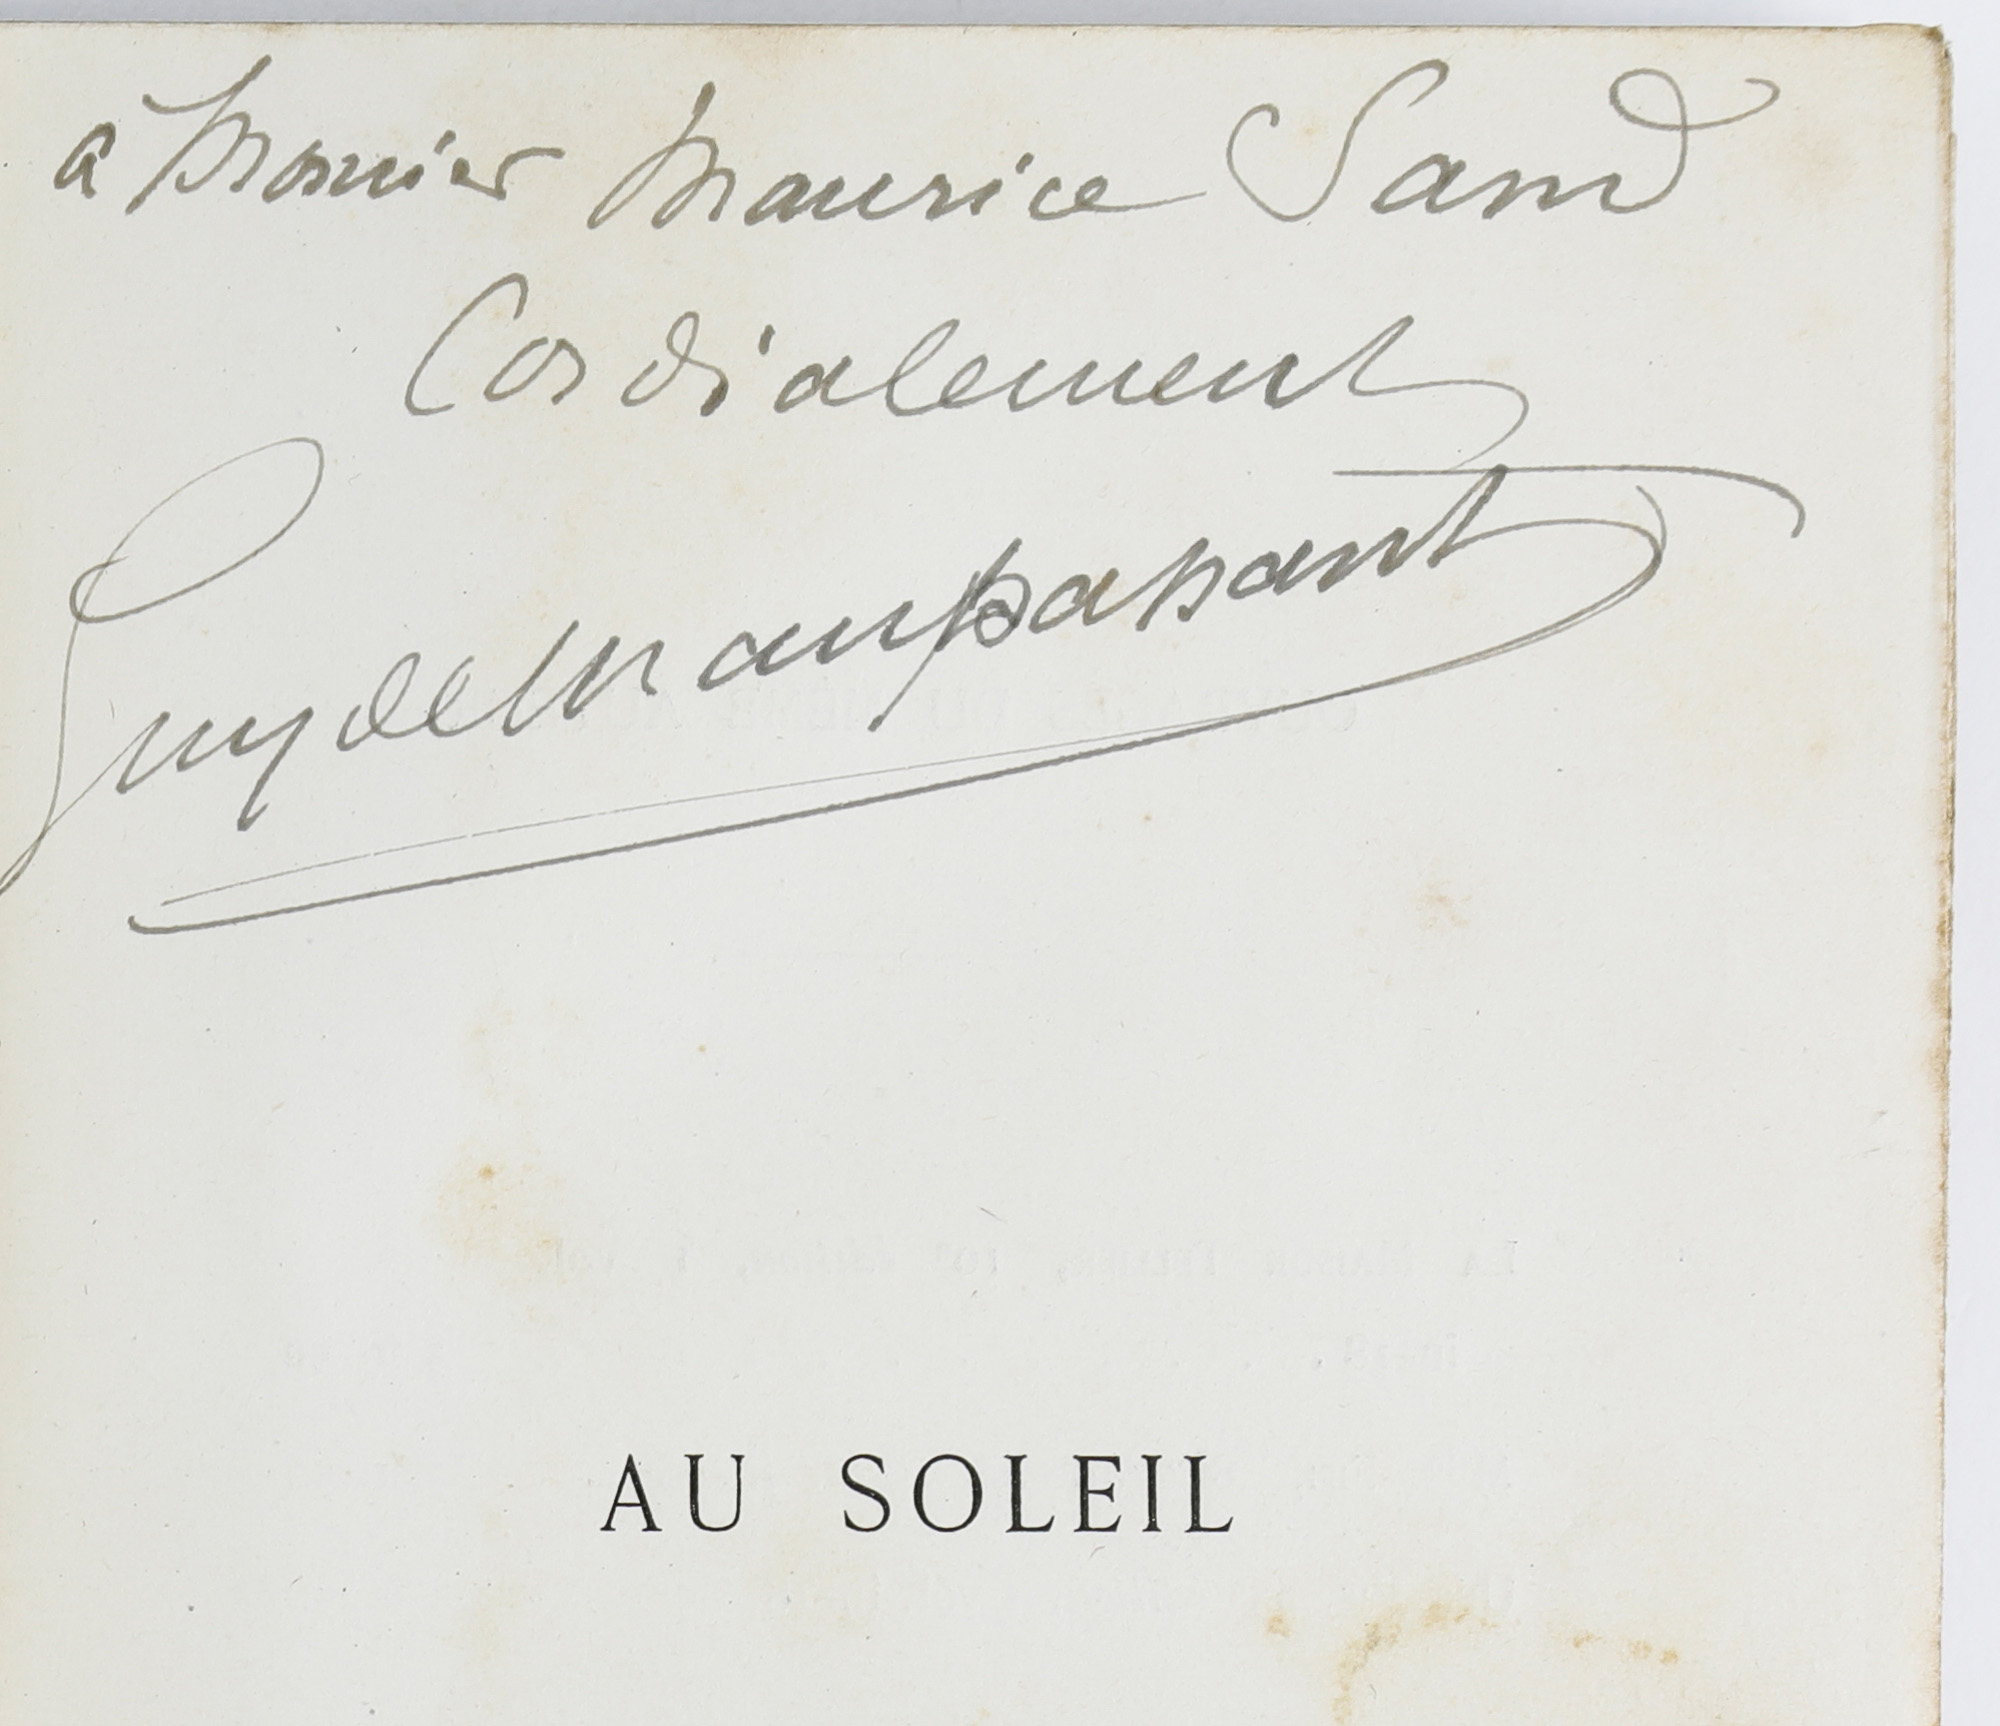 a Monsieur Maurice Sand
Cordialement
Guy de Maupassant
AU SOLEIL